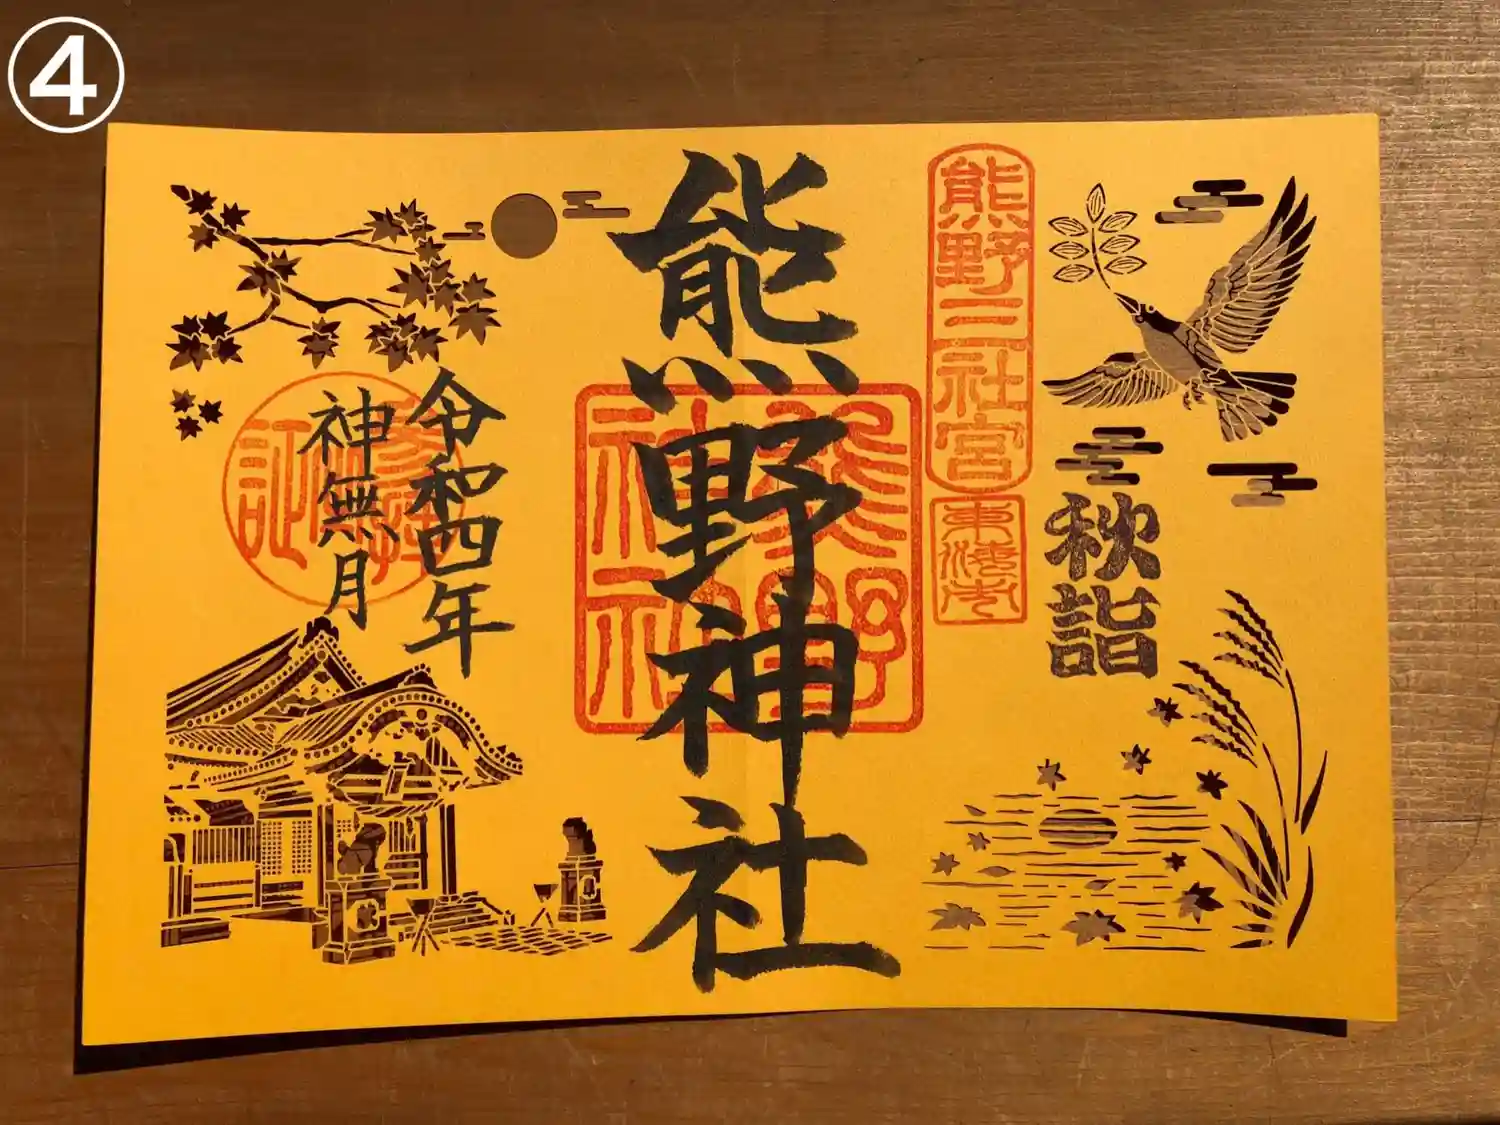 ④
熊野三社宮
秋詣
熊野神社
熊野
神社
令和四年
神無月
証